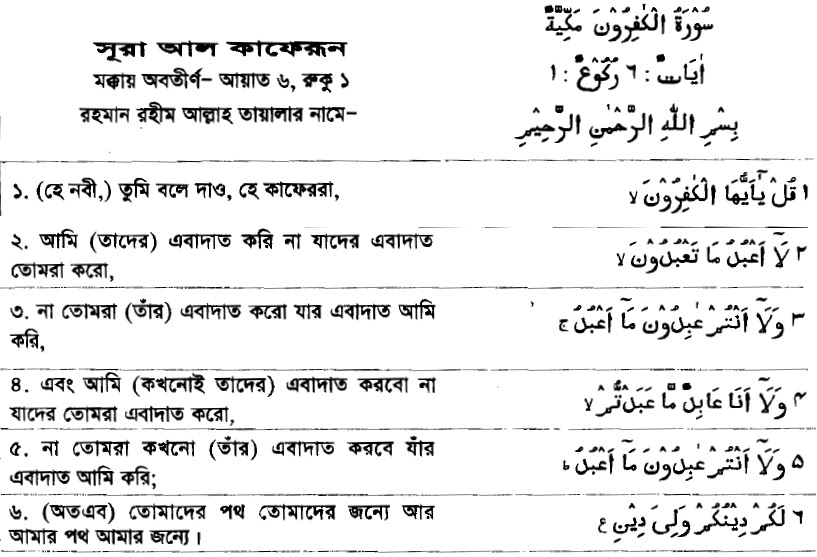 সূরা আল কাফেরূন
মক্কায় অবতীর্ণ– আয়াত ৬, রুকু ১
রহমান রহীম আল্লাহ তায়ালার নামে–
سُوْرَةُ الْكٰفِرُوْنَ مَكِّيَّةٌ
اٰيَاتٌ : ٦ رُكُوْعٌ : ١
بِسْمِ اللّٰهِ الرَّحْمٰنِ الرَّحِيْمِ
১. (হে নবী,) তুমি বলে দাও, হে কাফেররা,
١ قُلْ يٰۤاَيُّهَا الْكٰفِرُوْنَ ۙ
২. আমি (তাদের) এবাদাত করি না যাদের এবাদাত
তোমরা করো,
٢ لَاۤ اَعْبُدُ مَا تَعْبُدُوْنَ ۙ
৩. না তোমরা (তাঁর) এবাদাত করো যার এবাদাত আমি
করি,
٣ وَلَاۤ اَنْتُمْ عٰبِدُوْنَ مَاۤ اَعْبُدُ ۚ
৪. এবং আমি (কখনোই তাদের) এবাদাত করবো না
যাদের তোমরা এবাদাত করো,
٤ وَلَاۤ اَنَا عَابِدٌ مَّا عَبَدْتُّمْ ۙ
৫. না তোমরা কখনো (তাঁর) এবাদাত করবে যাঁর
এবাদাত আমি করি;
٥ وَلَاۤ اَنْتُمْ عٰبِدُوْنَ مَاۤ اَعْبُدُ ؕ
৬. (অতএব) তোমাদের পথ তোমাদের জন্যে আর
আমার পথ আমার জন্যে।
٦ لَكُمْ دِيْنُكُمْ وَلِيَ دِيْنِ ع